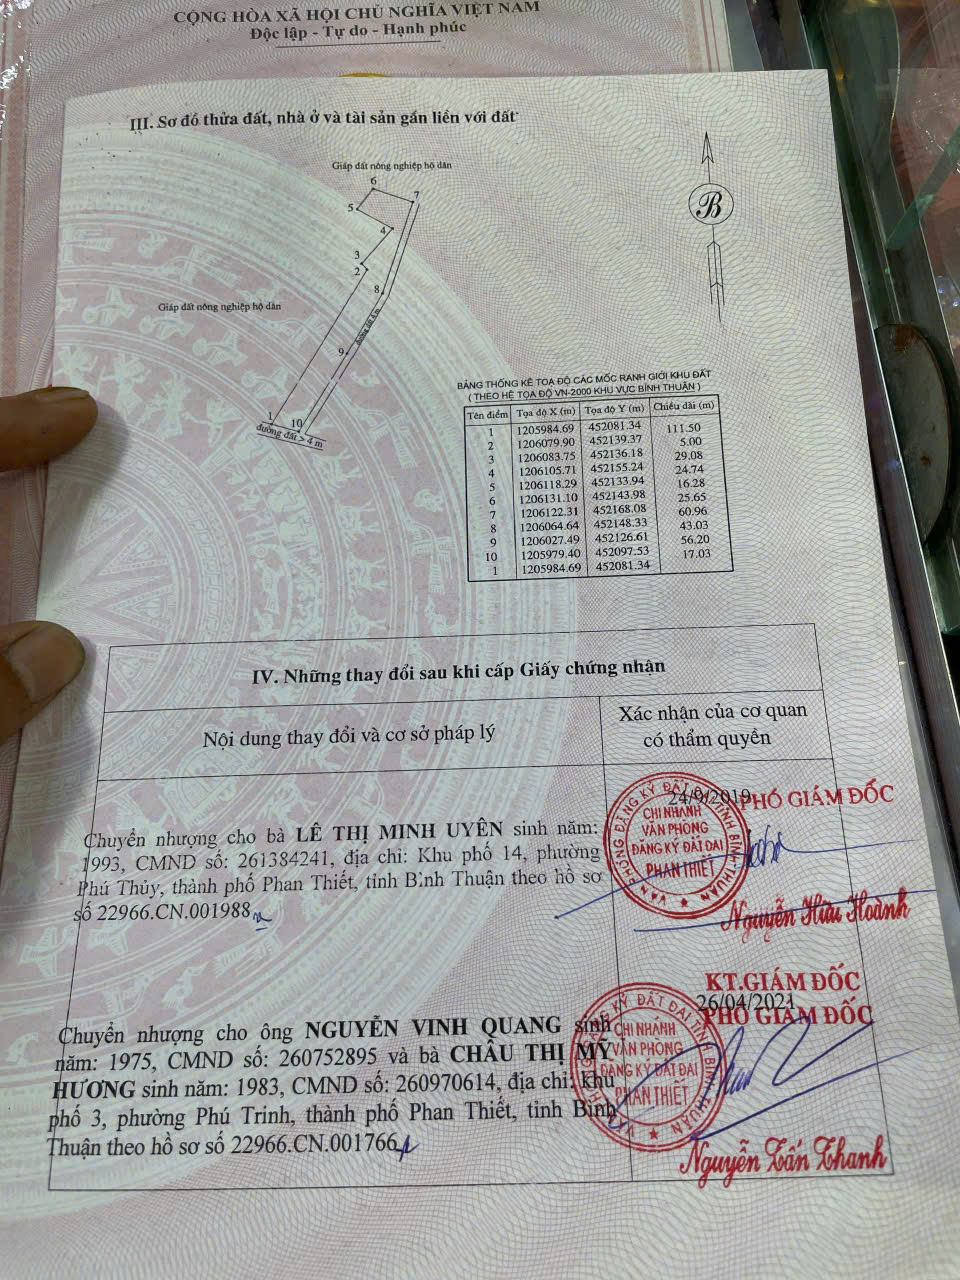 CỘNG HÒA XÃ HỘI CHỦ NGHĨA VIỆT NAM
Độc lập - Tự do - Hạnh phúc
III. Sơ đồ thửa đất, nhà ở và tài sản gắn liền với đất
Giáp đất nông nghiệp hộ dân
6
7
5
4
3
2
8
B
Giáp đất nông nghiệp hộ dân
đường đất 4 m
9
1
10
đường đất > 4 m
BẢNG THỐNG KÊ TOẠ ĐỘ CÁC MỐC RANH GIỚI KHU ĐẤT
( THEO HỆ TỌA ĐỘ VN-2000 KHU VỰC BÌNH THUẬN )
Tên điểm Tọa độ X (m) Tọa độ Y (m) Chiều dài (m)
1 1205984.69 452081.34 111.50
2 1206079.90 452139.37 5.00
3 1206083.75 452136.18 29.08
4 1206105.71 452155.24 24.74
5 1206118.29 452133.94 16.28
6 1206131.10 452143.98 25.65
7 1206122.31 452168.08 60.96
8 1206064.64 452148.33 43.03
9 1206027.49 452126.61 56.20
10 1205979.40 452097.53 17.03
1 1205984.69 452081.34
IV. Những thay đổi sau khi cấp Giấy chứng nhận
Nội dung thay đổi và cơ sở pháp lý
Xác nhận của cơ quan
có thẩm quyền
Chuyển nhượng cho bà LÊ THỊ MINH UYÊN sinh năm:
1993, CMND số: 261384241, địa chỉ: Khu phố 14, phường
Phú Thủy, thành phố Phan Thiết, tỉnh Bình Thuận theo hồ sơ
số 22966.CN.001988
24/9/2019
PHÓ GIÁM ĐỐC
VĂN PHÒNG ĐĂNG KÝ ĐẤT ĐAI TỈNH BÌNH THUẬN
CHI NHÁNH
VĂN PHÒNG
ĐĂNG KÝ ĐẤT ĐAI
PHAN THIẾT
Nguyễn Hữu Hoành
Chuyển nhượng cho ông NGUYỄN VINH QUANG sinh
năm: 1975, CMND số: 260752895 và bà CHÂU THỊ MỸ
HƯƠNG sinh năm: 1983, CMND số: 260970614, địa chỉ: khu
phố 3, phường Phú Trinh, thành phố Phan Thiết, tỉnh Bình
Thuận theo hồ sơ số 22966.CN.001766
KT.GIÁM ĐỐC
26/04/2021
PHÓ GIÁM ĐỐC
VĂN PHÒNG ĐĂNG KÝ ĐẤT ĐAI TỈNH BÌNH THUẬN
CHI NHÁNH
VĂN PHÒNG
ĐĂNG KÝ ĐẤT ĐAI
PHAN THIẾT
Nguyễn Tấn Thanh